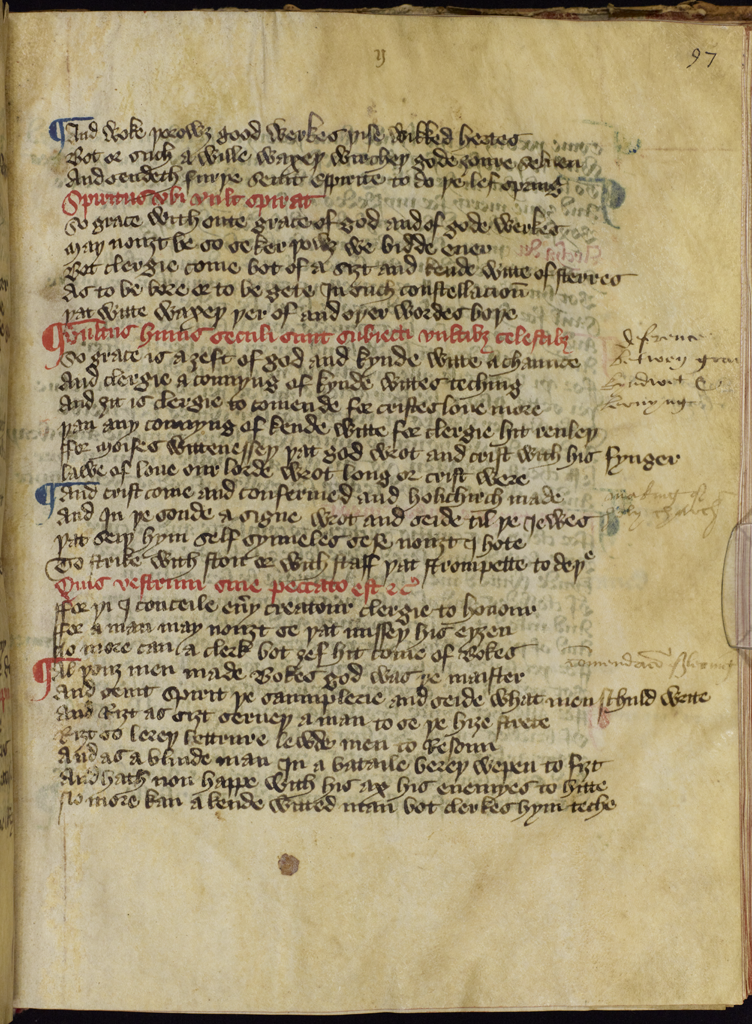 y
97
And woke þorowȝ good werkes þise wikked hertes
Bot or such a wille waxeþ wircheþ gode ȝoure seluen
And sendeth furþe seint espirite to do þe lef spring
Spiritus vbi vult spirat
So grace with oute grace of god and of gode werkes
May nouȝt be so seker þowȝ we bidde euer
Bot clergie come bot of a siȝt and kende witte of sterres
As to be bore or to be gete in such constellacioun
þat witte waxeþ þer of and oþer wordes boþe
huius seculi sunt subiecti vultibȝ celestibȝ
So grace is a ȝeft of god and kynde witte a chaunce
And clergie a connyng of kynde wittes teching
And ȝit is clergie to comende for cristes loue more
þan any connyng of kende witte for clergie hit renleþ
ffor moises wittenesseþ þat god wrot and crist with his fynger
lawe of loue our lorde wrot long or crist were
And crist come and confermed and holichirch made
And in þe sonde a signe wrot and seide til þe iewes
þat seiþ hym self synneles sese nouȝt I hote
To strike with ston or with staff þat strompette to deþe
Quis vestrum sine peccato est &c
ffor þi I conceile eu'y creatour clergie to honour
ffor a man may nouȝt se þat misseþ his eyȝen
No more can a clerk bot ȝef hit come of bokes
Al þouȝ men made bokes god was þe maister
And seint spirit þe saumplerie and seide what men schuld write
And riȝt as siȝt serueþ a man to se þe hiȝe strete
Riȝt so lereþ lettrure lewde men to resoun
And as a blinde man in a bataile bereþ wepen to fiȝt
And hath non happe with his ax his enemyes to hitte
No more kan a kende witted man bot clerkes hym teche
deference
betwen grace
kindwit &
konynge
making of
holy church